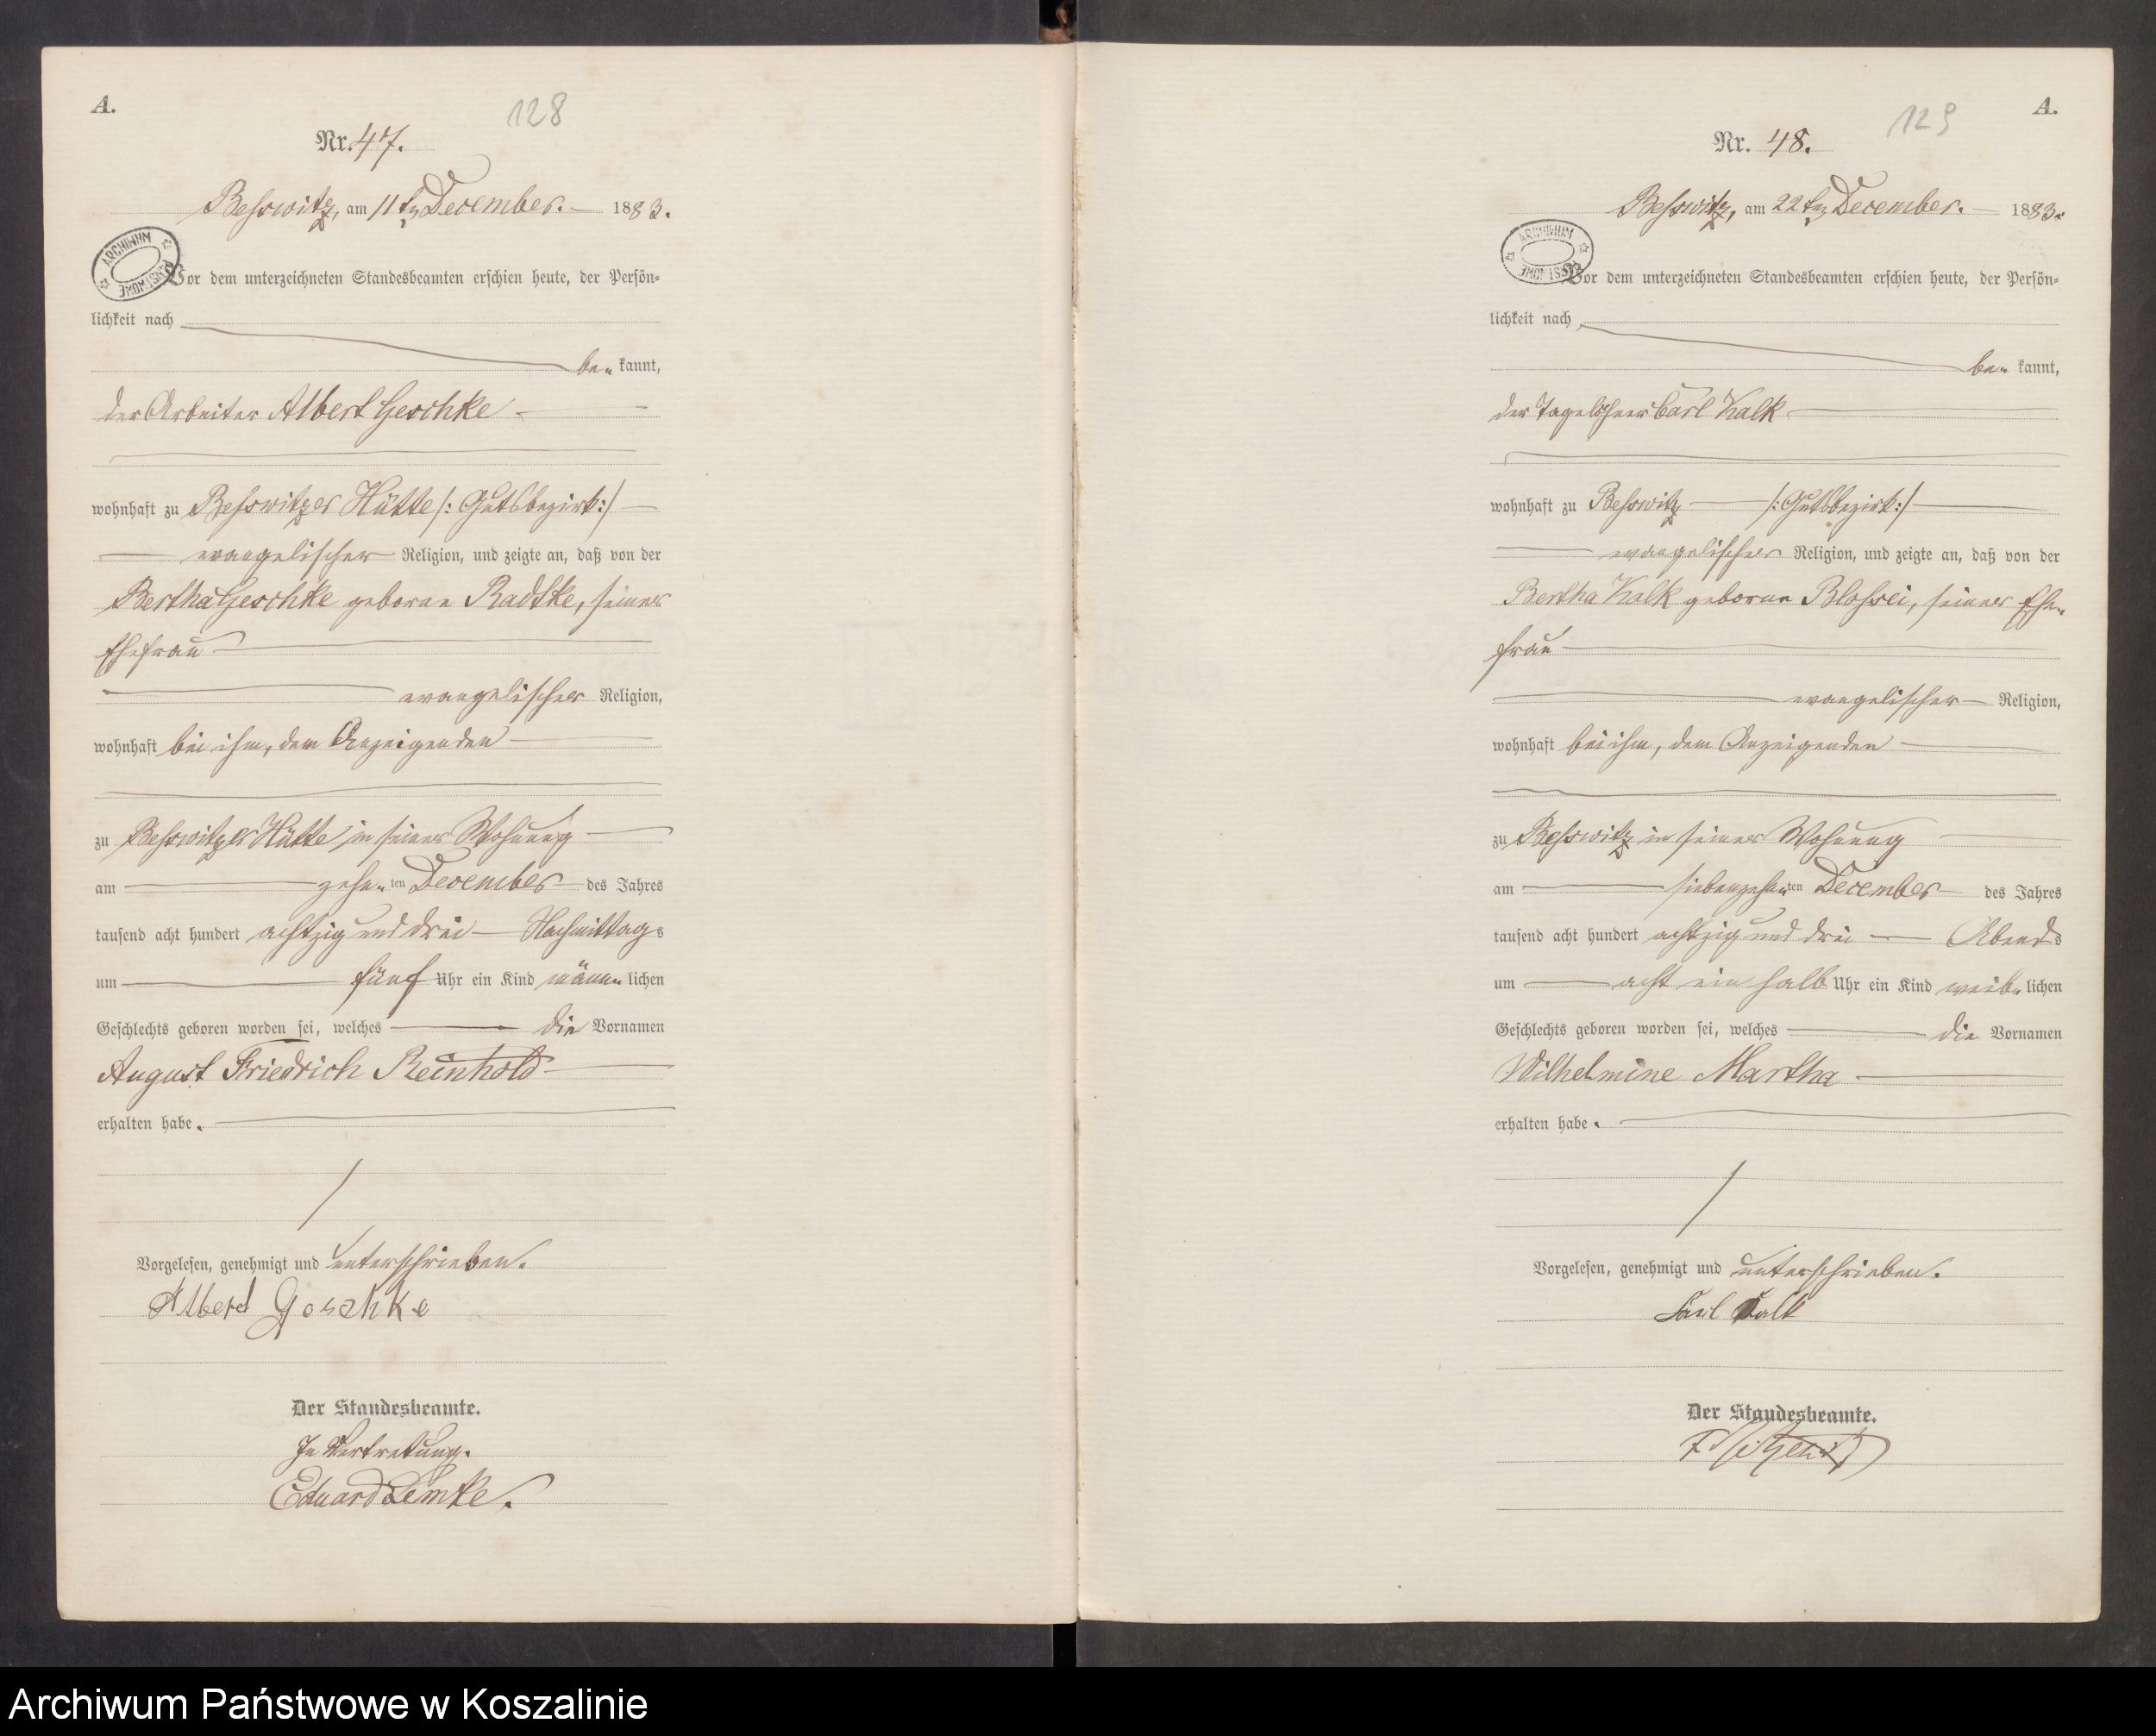 A.
128
Nr. 47.
Beßwitz, am 11ten December. 1883.
ARCHIWUM PAŃSTWOWE
Vor dem unterzeichneten Standesbeamten erschien heute, der Persön-
lichkeit nach
be- kannt,
der Arbeiter Albert Geschke
wohnhaft zu Beßwitzer Hütte /: Gutsbezirk :/
evangelischer Religion, und zeigte an, daß von der
Bertha Geschke geborne Radtke, seiner
Ehefrau
evangelischer Religion,
wohnhaft bei ihm, dem Anzeigenden
zu Beßwitzer Hütte in seiner Wohnung
am zehn-ten December des Jahres
tausend acht hundert achtzig und drei Nachmittags
um fünf Uhr ein Kind männ-lichen
Geschlechts geboren worden sei, welches die Vornamen
August Friedrich Reinhold
erhalten habe.
Vorgelesen, genehmigt und unterschrieben.
Alberd Geschke
Der Standesbeamte.
In Vertretung.
Eduard Lemke.
A.
129
Nr. 48.
Beßwitz, am 22ten December. 1883.
ARCHIWUM PAŃSTWOWE
Vor dem unterzeichneten Standesbeamten erschien heute, der Persön-
lichkeit nach
be- kannt,
der Tagelöhner Carl Kalk
wohnhaft zu Beßwitz /: Gutsbezirk :/
evangelischer Religion, und zeigte an, daß von der
Bertha Kalk geborne Bloßei, seiner Ehe-
frau
evangelischer Religion,
wohnhaft bei ihm, dem Anzeigenden
zu Beßwitz in seiner Wohnung
am siebenzehnten December des Jahres
tausend acht hundert achtzig und drei Abends
um acht ein halb Uhr ein Kind weib-lichen
Geschlechts geboren worden sei, welches die Vornamen
Wilhelmine Martha
erhalten habe.
Vorgelesen, genehmigt und unterschrieben.
Carl Kalk
Der Standesbeamte.
Archiwum Państwowe w Koszalinie